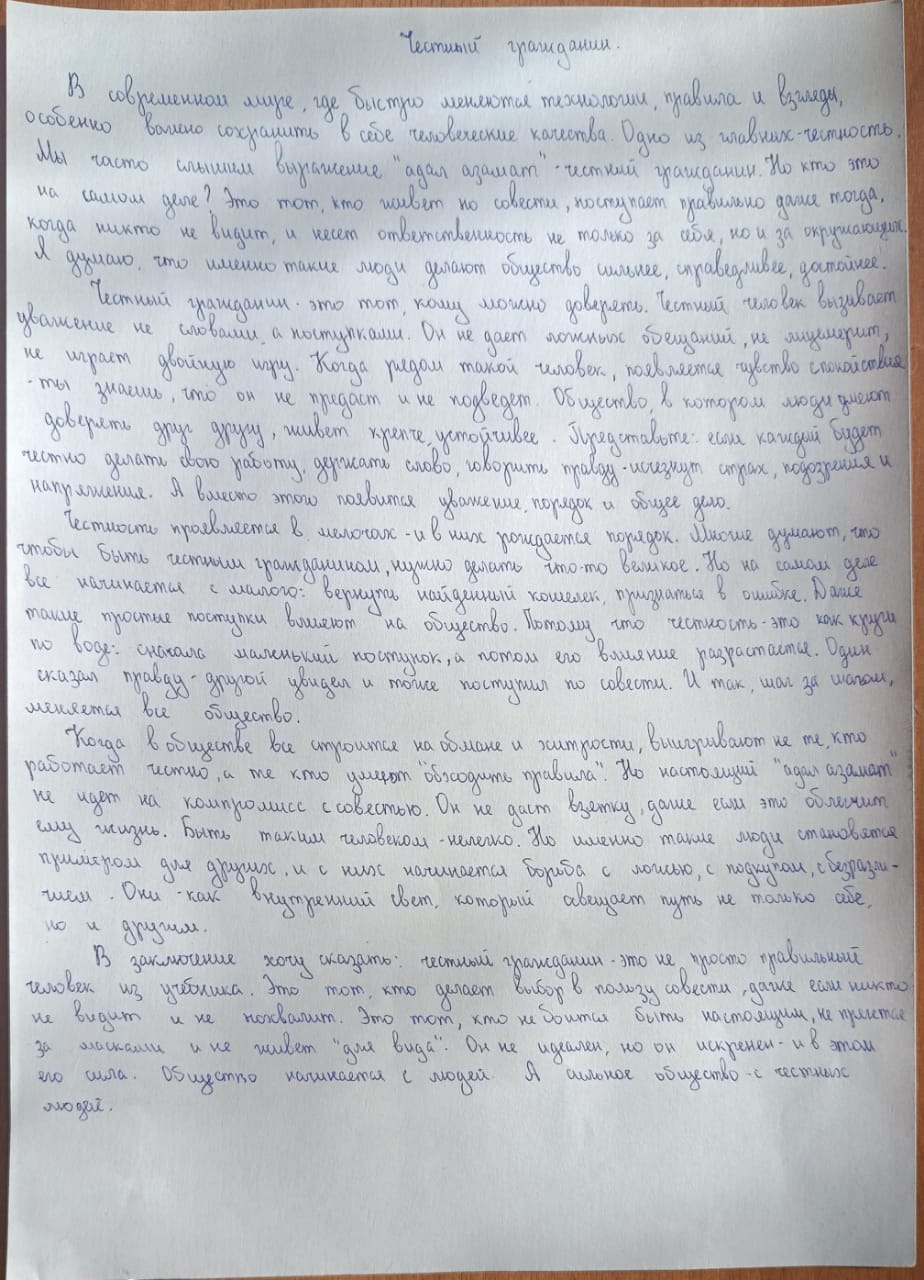 Честный гражданин.
В современном мире, где быстро меняются технологии, правила и взгляды,
особенно важно сохранить в себе человеческие качества. Одно из главних-честность.
Мы часто слышим выражение "адал азамат" - честний гражданин. Но кто это
на самом деле? Это тот, кто живет по совести, поступает правильно даже тогда,
когда никто не видит, и несет ответственность не только за себя, но и за окружающих.
Я думаю, что именно такие люди делают общество сильнее, справедливее, достойнее.
Честный гражданин - это тот, кому можно доверять. Честный человек вызивает
уважение не словами, а поступками. Он не дает ложных обещаний, не лицемерит,
не играет двойную игру. Когда рядом такой человек, появляется чувство спокойствия
- ты знаешь, что он не предаст и не подведет. Общество, в котором люди умеют
доверять друг другу, живет крепче, устойчивее. Представьте: если каждый будет
честно делать свою работу, держать слово, говорить правду - исчезнут страх, подозрения и
напряжение. А вместо этого появится уважение, порядок и общее дело.
Честность проявляется в мелочах - и в них рождается порядок. Многие думают, что
чтобы быть честным гражданином, нужно делать что-то великое. Но на самом деле
все начинается с малого: вернуть найденный кошелек, признаться в ошибке. Даже
такие простые поступки влияют на общество. Потому что честность - это как круги
по воде: сначала маленький поступок, а потом его влияние разрастается. Один
сказал правду - другой увидел и тоже поступил по совести. И так, шаг за шагом,
меняется все общество.
Когда в обществе все строится на обмане и хитрости, выигривают не те, кто
работает честно, а те кто умеют "обходить правила". Но настоящий "адал азамат"
не идет на компромисс с совестью. Он не даст взятку, даже если это облегчит
ему жизнь. Быть таким человеком - нелегко. Но именно такие люди становятся
примером для других, и с них начинается борьба с ложью, с подкупом, с безразли-
чием. Они - как внутренний свет, который освещает путь не только себе,
но и другим.
В заключение хочу сказать: честный гражданин - это не просто правильный
человек из учебника. Это тот, кто делает выбор в пользу совести, даже если никто
не видит и не похвалит. Это тот, кто не боится быть настоящим, не прячется
за масками и не живет "для вида". Он не идеален, но он искренен - и в этом
его сила. Общество начинается с людей. А сильное общество - с честных
людей.